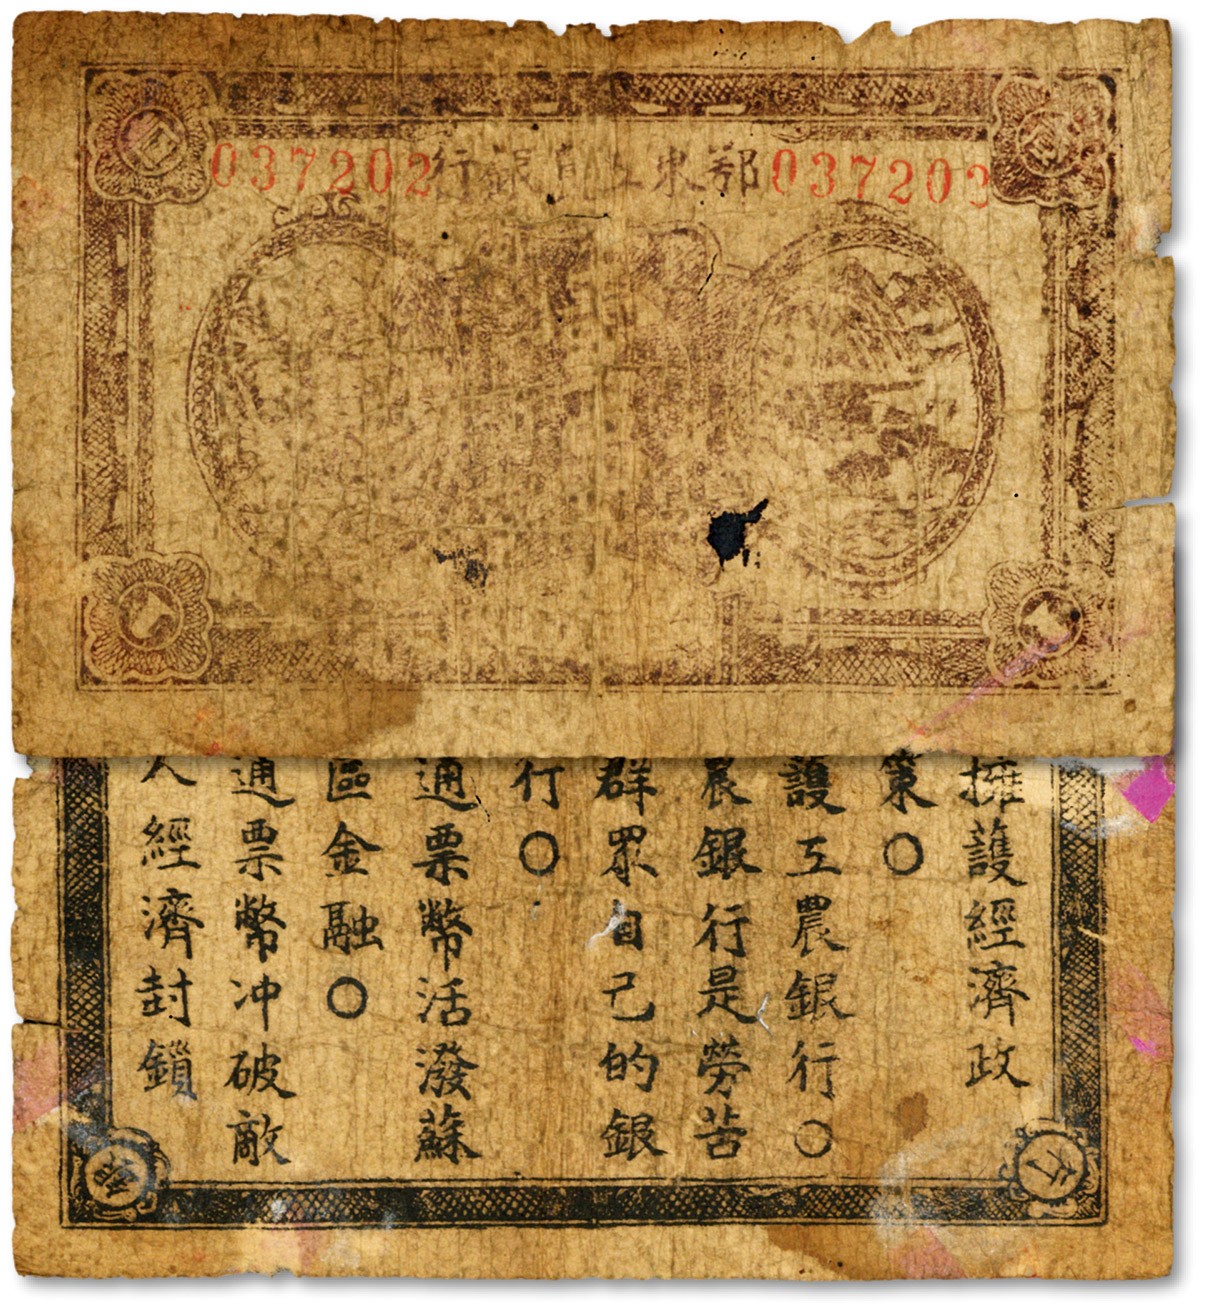 037202
鄂東工農銀行
037202
擁護經濟政
策○
護工農銀行○
農銀行是勞苦
群眾自己的銀
行○
通票幣活潑蘇
區金融○
通票幣冲破敵
人經濟封鎖
行
銀